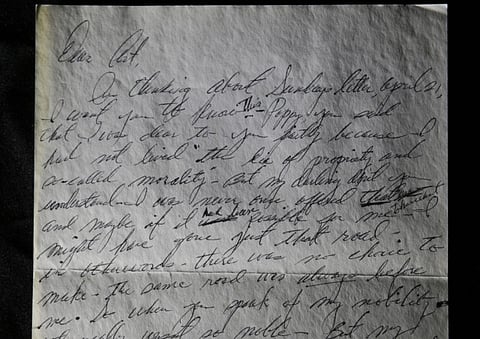 Dear Art,
In thinking about Sundays letter, April 21,
I want you to know this - Poppy, you said
that I was dear to you partly because I
had not lived "the lie of propriety and
so-called morality" - But my darling don't you
understand - I was never once offered that
and maybe if it had been possible for me - I
might have gone just that road -
In otherwords - there was no choice to
make - the same road was always before
me. So when you speak of my nobility -
I really wasn't so noble - But my